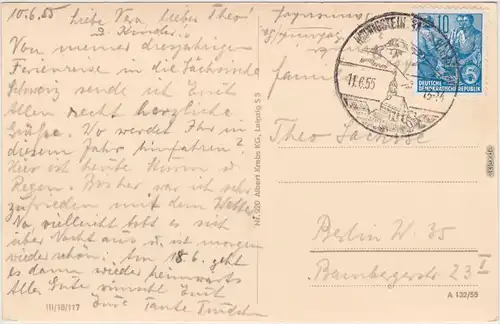 10.6.55 Liebe Vera, lieber Theo!
u. Kinder!
Von meiner diesjährigen
Ferienreise in die Sächsische
Schweiz sende ich Euch
Allen recht herzliche
Grüße. Wo werdet Ihr in
diesem Jahr hinfahren?
Hier ist heute Sturm u.
Regen. Bisher war ich sehr
zufrieden mit dem Wetter.
Na, vielleicht tobt es sich
über Nacht aus u. ist morgen
wieder schön. Am 18.6. geht
es dann wieder heimwärts
Alles Gute wünscht Euch
Eure Tante Trudchen
III/18/117
Nr. 920 Albert Krebs KG., Leipzig S 3
Theo
Berlin W. 35
23 I
A 132/55
KÖNIGSTEIN
11.6.55
10
5
DEUTSCHE
DEMOKRATISCHE REPUBLIK